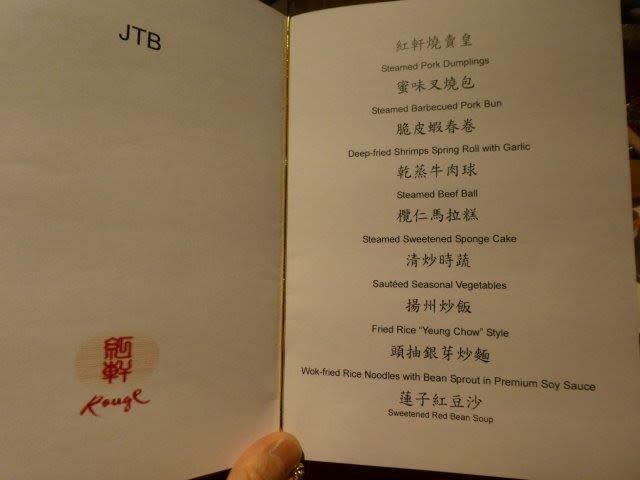 JTB
紅軒
Rouge
紅軒燒賣皇
Steamed Pork Dumplings
蜜味叉燒包
Steamed Barbecued Pork Bun
脆皮蝦春卷
Deep-fried Shrimps Spring Roll with Garlic
乾蒸牛肉球
Steamed Beef Ball
欖仁馬拉糕
Steamed Sweetened Sponge Cake
清炒時蔬
Sautéed Seasonal Vegetables
揚州炒飯
Fried Rice "Yeung Chow" Style
頭抽銀芽炒麵
Wok-fried Rice Noodles with Bean Sprout in Premium Soy Sauce
蓮子紅豆沙
Sweetened Red Bean Soup